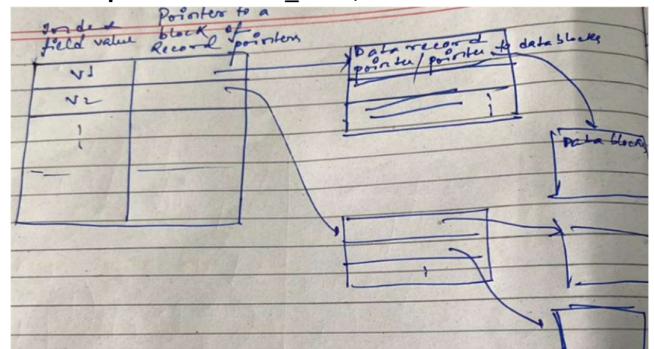 Index
field value
Pointer to a
block of
Record pointers
V1
V2
Data record
pointer / pointer to data blocks
Data blocks